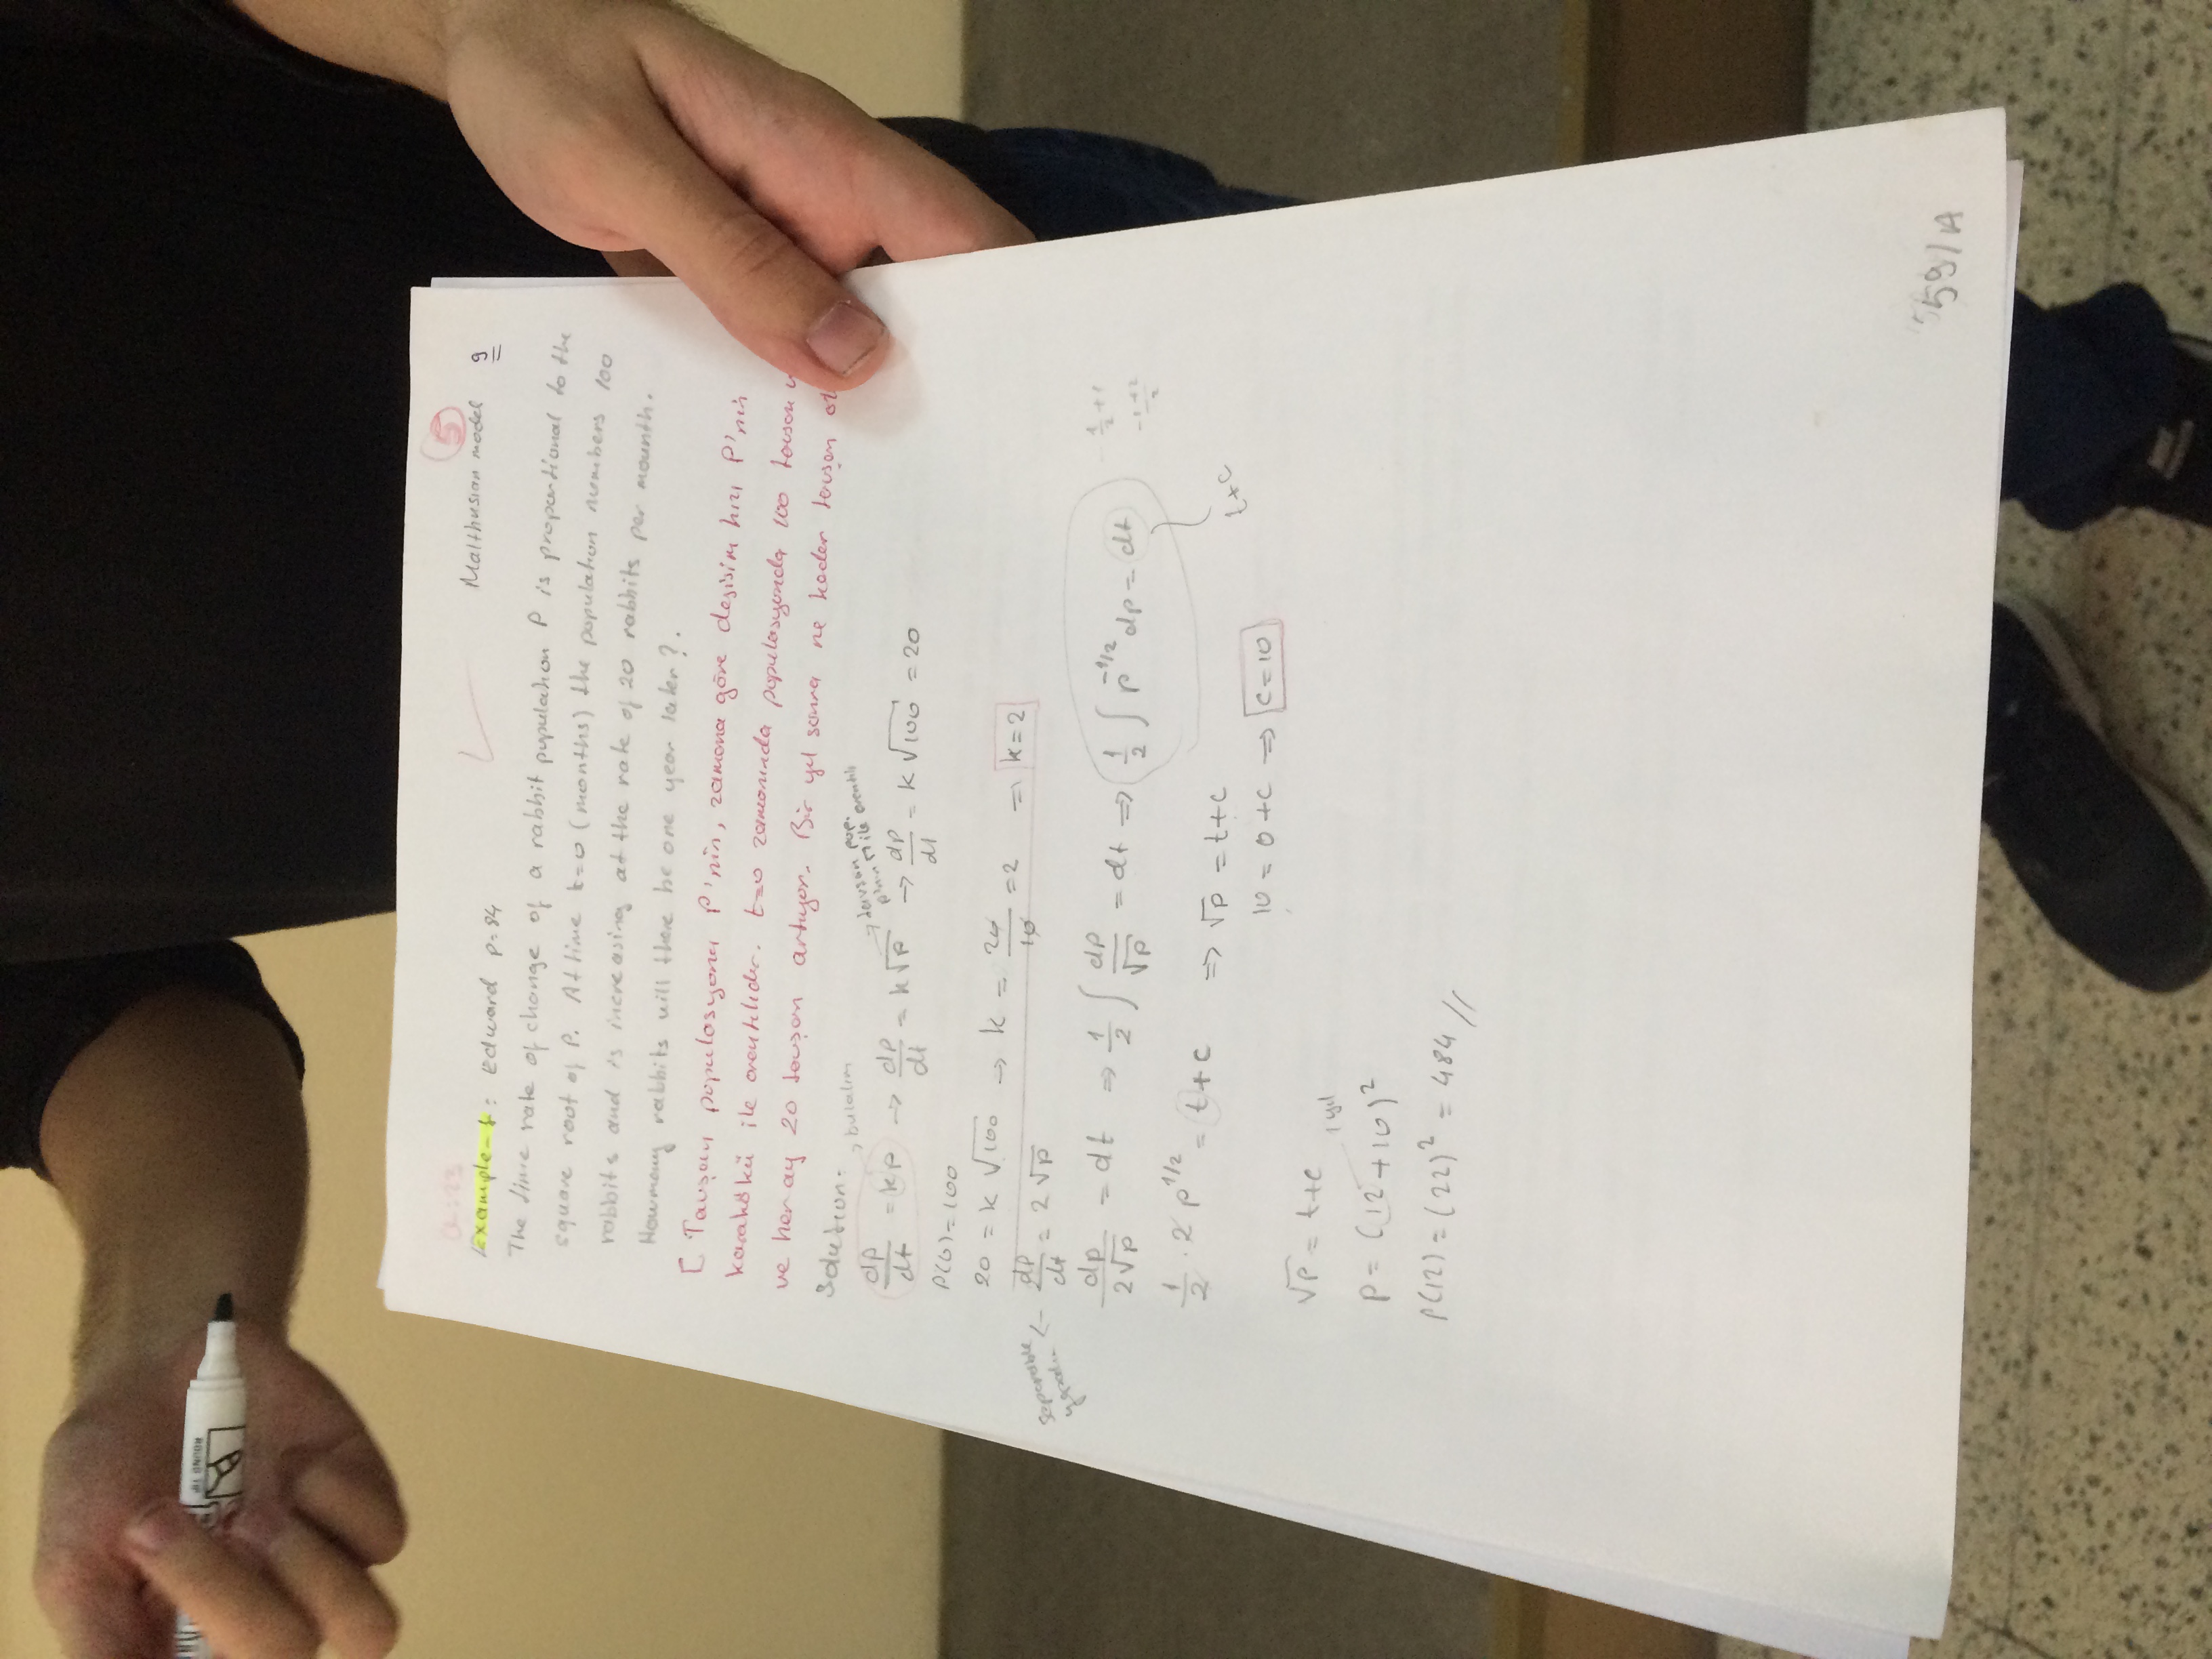 ROUND TIP
5
Example-1: Edward p=84
Malthusian model 9
The time rate of change of a rabbit population P is proportional to the
square root of P. At time t=0 (months) the population numbers 100
rabbits and is increasing at the rate of 20 rabbits per mounth.
Howmany rabbits will there be one year later?.
[ Tavşan populasyona P'nin, zamana göre değişim hızı P'nin
karakökü ile orantılıdır. t=0 zamanında populasyonda 100 tavşan
ve her ay 20 tavşan artıyor. Bir yıl sonra ne kadar tavşan
Solution:
bulalım
tavşan pop.
p'nin √ ile orantılı
dp/dt = kp → dp/dt = k√p → dp/dt = k√100 = 20
P(0)=100
20 = k √100 → k = 20/10 = 2 ⇒ k=2
separable
yapalım
← dp/dt = 2√p
dp/2√p = dt ⇒ 1/2 ∫ dp/√p = dt ⇒ 1/2 ∫ p^-1/2 dp = dt
-1/2+1
-1+2/2
1/2 · 2 p^1/2 = t+c ⇒ √p = t+c
t+c
10 = 0+c ⇒ c=10
√p = t+c
1 yıl
p = (12+10)²
P(12) = (22)² = 484 //
59/A